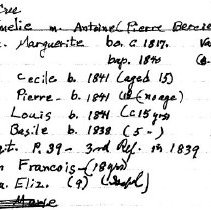 Cree
melie m. Antoine (Pierre Berc
. Marguerite ba. c. 1817.
bap. 1840
Cecile b. 1841 (aged 15)
Pierre - b. 1841 (no age)
Louis b. 1841 (c15 yrs
Basile b. 1838 (5 -)
t. P. 39 - 3rd Ref. in 1839
Francois - (18 yrs)
a. Eliz. (9)